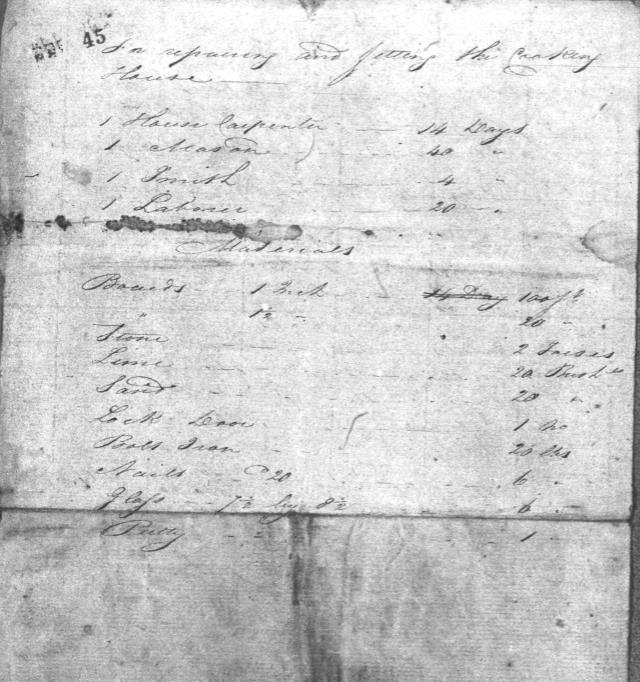 45
For repairing and fitting the Cooking
House
1 House Carpenter 14 Days
1 Mason 40 "
1 Smith 4 "
1 Labourer 20 "
Materials
Boards 1 Inch 14 Day 100 ft
" 1½ " 20 "
Stone 2 Toises
Lime 20 Bushls
Sand 20 "
Lock Door 1 No
Bolt Iron 20 lbs
Nails C 20 6 "
Glass 7½ by 8½ 6 "
Putty 1 "